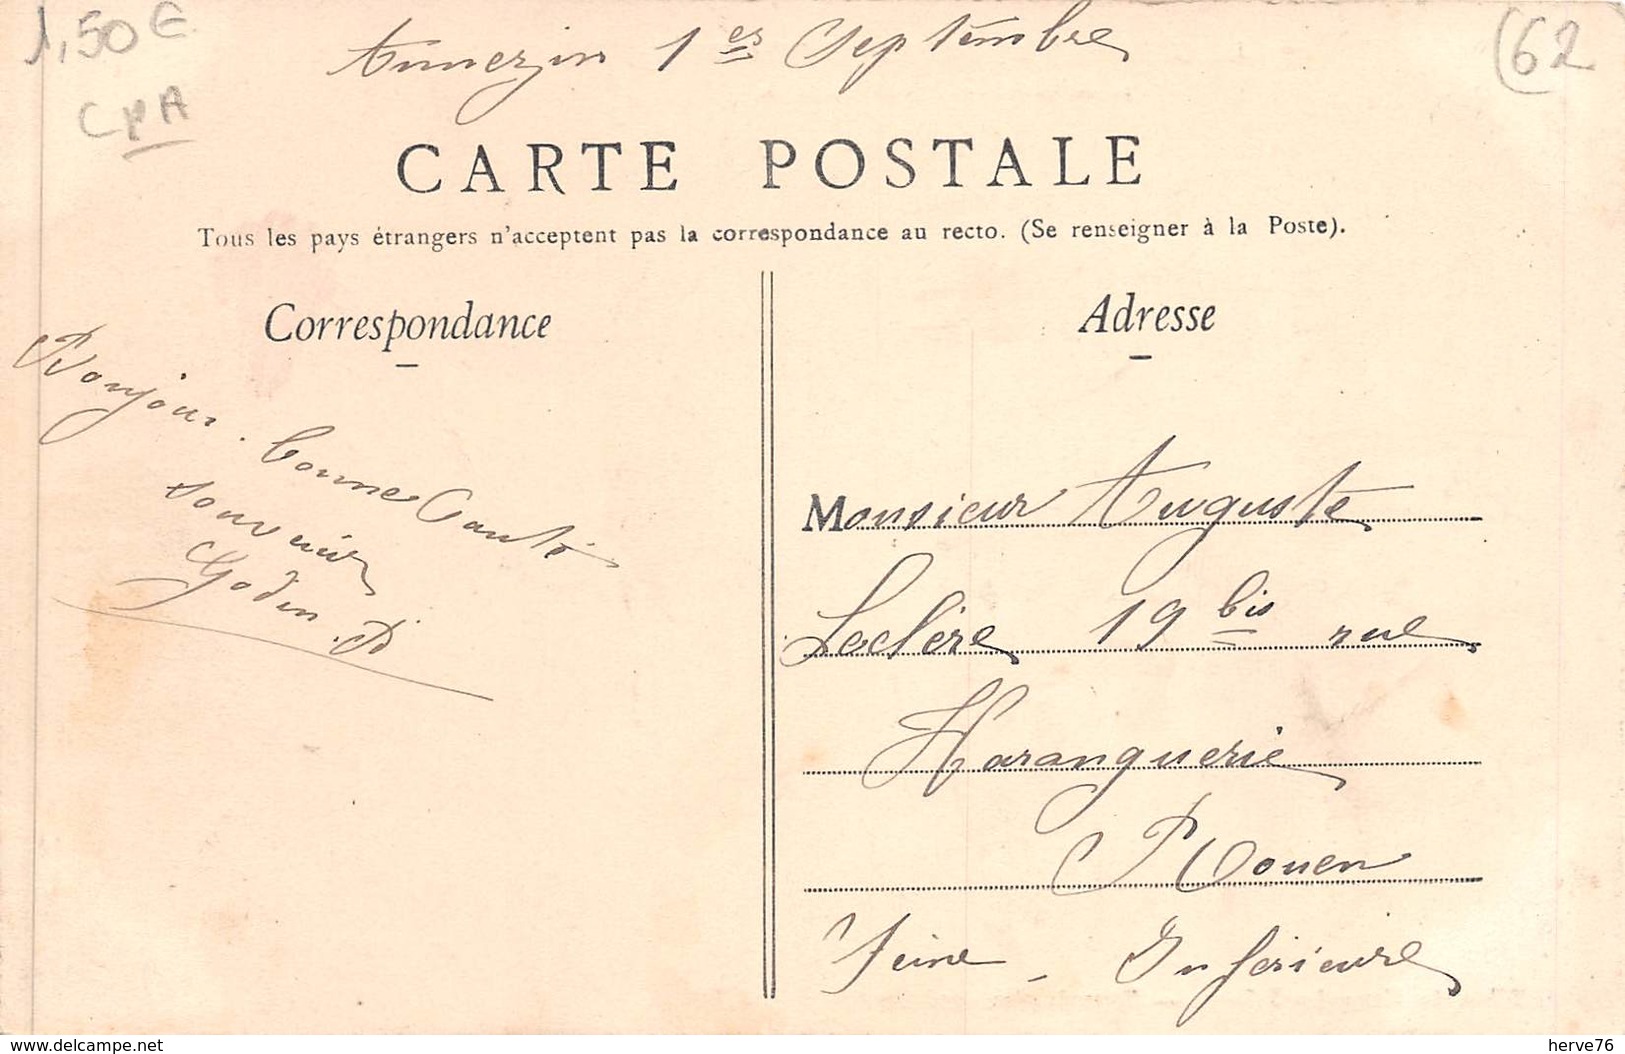 1,50€
CPA
(62
Annezin 1er Septembre
CARTE POSTALE
Tous les pays étrangers n'acceptent pas la correspondance au recto. (Se renseigner à la Poste).
Correspondance
Adresse
Bonjour. bonne Santé
souvenir
Godin. D
Monsieur Auguste
Leclère 19 bis rue
Haranguerie
Rouen
Seine - Inférieure
www.delcampe.net
herve76